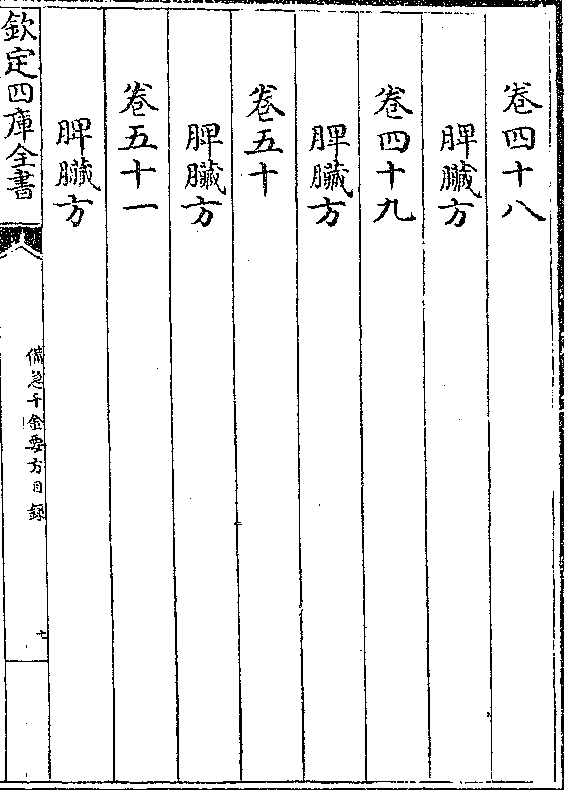 卷四十八
脾臟方
卷四十九
脾臟方
卷五十
脾臟方
卷五十一
脾臟方
欽定四庫全書
備急千金要方目錄
七